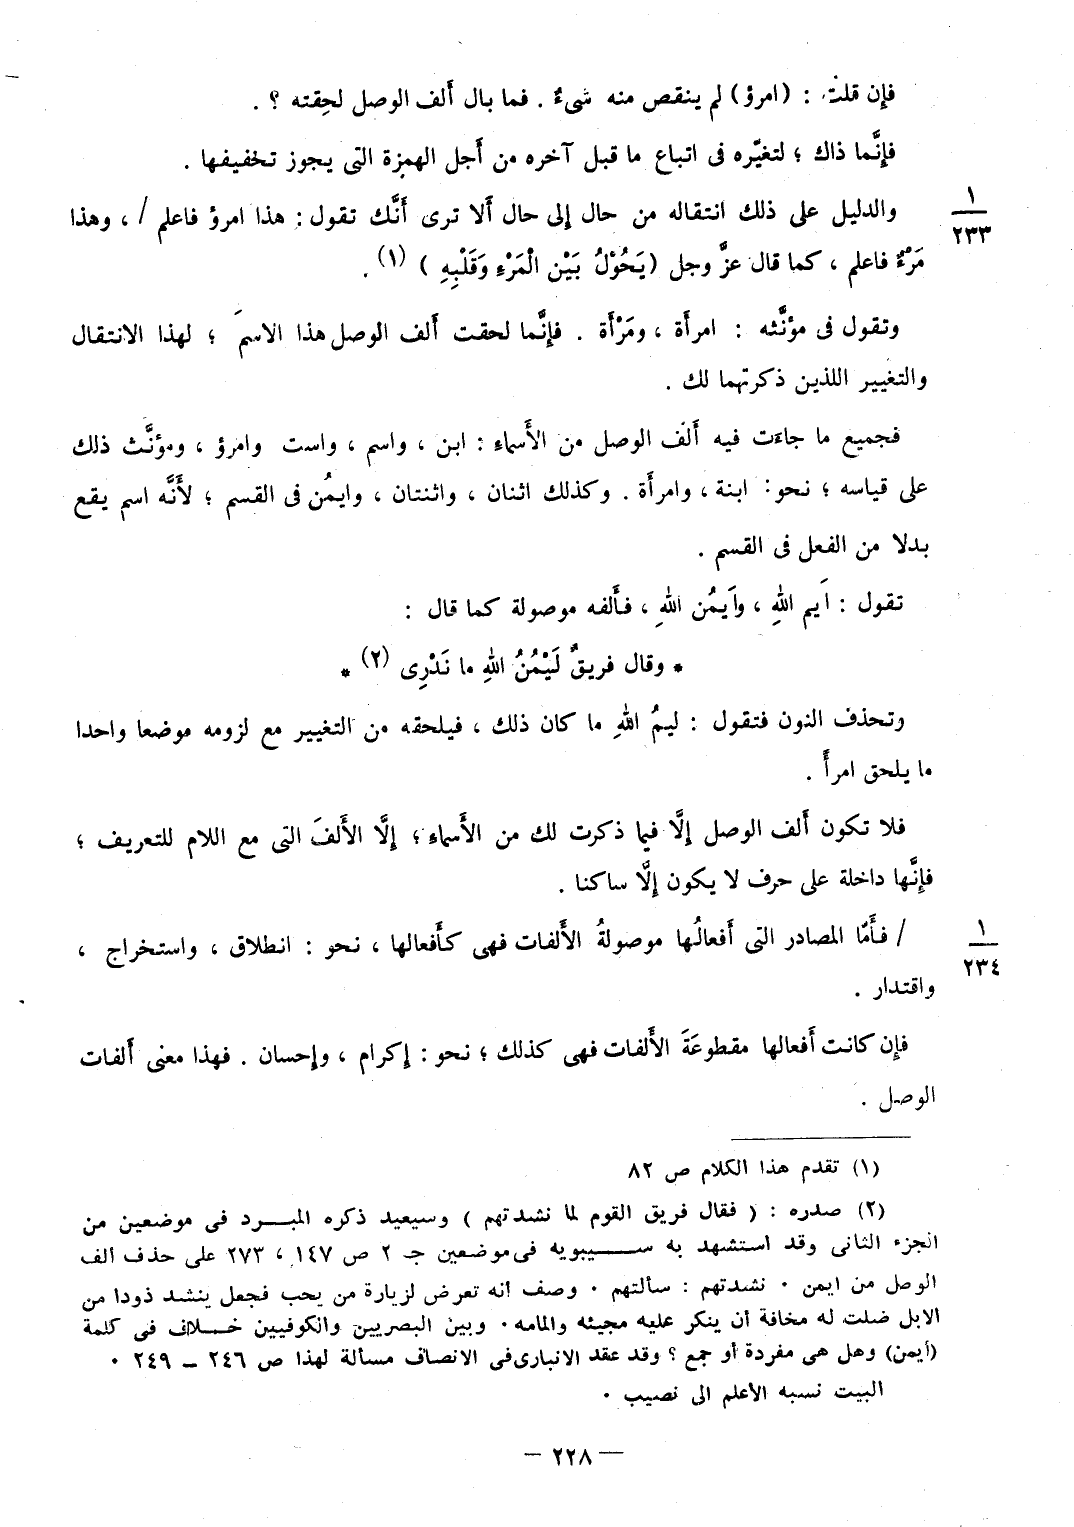 فإن قلت : (امرؤ) لم ينقص منه شىءٌ . فما بال ألف الوصل لحِقته ؟ .
فإنَّما ذاك ؛ لتغيّره فى اتباع ما قبل آخره من أجل الهمزة التى يجوز تخفيفها .
والدليل على ذلك انتقاله من حال إلى حال ألا ترى أنَّك تقول : هذا امرؤ فاعلم / ، وهذا
١
٢٣٣
مَرْءٌ فاعلم ، كما قال عزَّ وجل (يَحُوْلُ بَيْن الْمَرْءِ وَقَلْبِهِ ) (١) .
وتقول فى مؤنَّثه : امرأة ، ومَرْأة . فإنَّما لحقت ألف الوصل هذا الاسمَ ؛ لهذا الانتقال
والتغيير اللذين ذكرتهما لك .
فجميع ما جاءت فيه ألف الوصل من الأسماء : ابن ، واسم ، واست وامرؤ ، ومؤنَّث ذلك
على قياسه ؛ نحو : ابنة ، وامرأة . وكذلك اثنان ، واثنتان ، وايمُن فى القسم ؛ لأنَّه اسم يقع
بدلا من الفعل فى القسم .
تقول : اَيم اللهِ ، واَيمُن اللهِ ، فألفه موصولة كما قال :
* وقال فريقٌ لَيْمُنُ اللهِ ما نَدْرِى (٢) *
وتحذف النون فتقول : ليمُ اللهِ ما كان ذلك ، فيلحقه من التغيير مع لزومه موضعا واحدا
ما يلحق امرأً .
فلا تكون ألف الوصل إلَّا فيما ذكرت لك من الأسماء ؛ إلَّا الألفَ التى مع اللام للتعريف ؛
فإنَّها داخلة على حرف لا يكون إلَّا ساكنا .
/ فأمّا المصادر التى أفعالُها موصولةُ الألفات فهى كأفعالها ، نحو : انطلاق ، واستخراج ،
١
٢٣٤
واقتدار .
فإن كانت أفعالها مقطوعَةَ الألفات فهى كذلك ؛ نحو : إكرام ، وإحسان . فهذا معنى ألفات
الوصل .
(١) تقدم هذا الكلام ص ٨٢
(٢) صدره : ( فقال فريق القوم لما نشدتهم ) وسيعيد ذكره المبـــرد فى موضعين من
الجزء الثانى وقد استشهد به ســـيبويه فى موضعين جـ ٢ ص ١٤٧ ، ٢٧٣ على حذف الف
الوصل من ايمن ٠ نشدتهم : سألتهم ٠ وصف انه تعرض لزيارة من يحب فجعل ينشد ذودا من
الابل ضلت له مخافة أن ينكر عليه مجيئه والمامه ٠ وبين البصريين والكوفيين خـــلاف فى كلمة
(أيمن) وهل هى مفردة أو جمع ؟ وقد عقد الانبارى فى الانصاف مسألة لهذا ص ٢٤٦ ــ ٢٤٩ ٠
البيت نسبه الأعلم الى نصيب ٠
— ٢٢٨ —